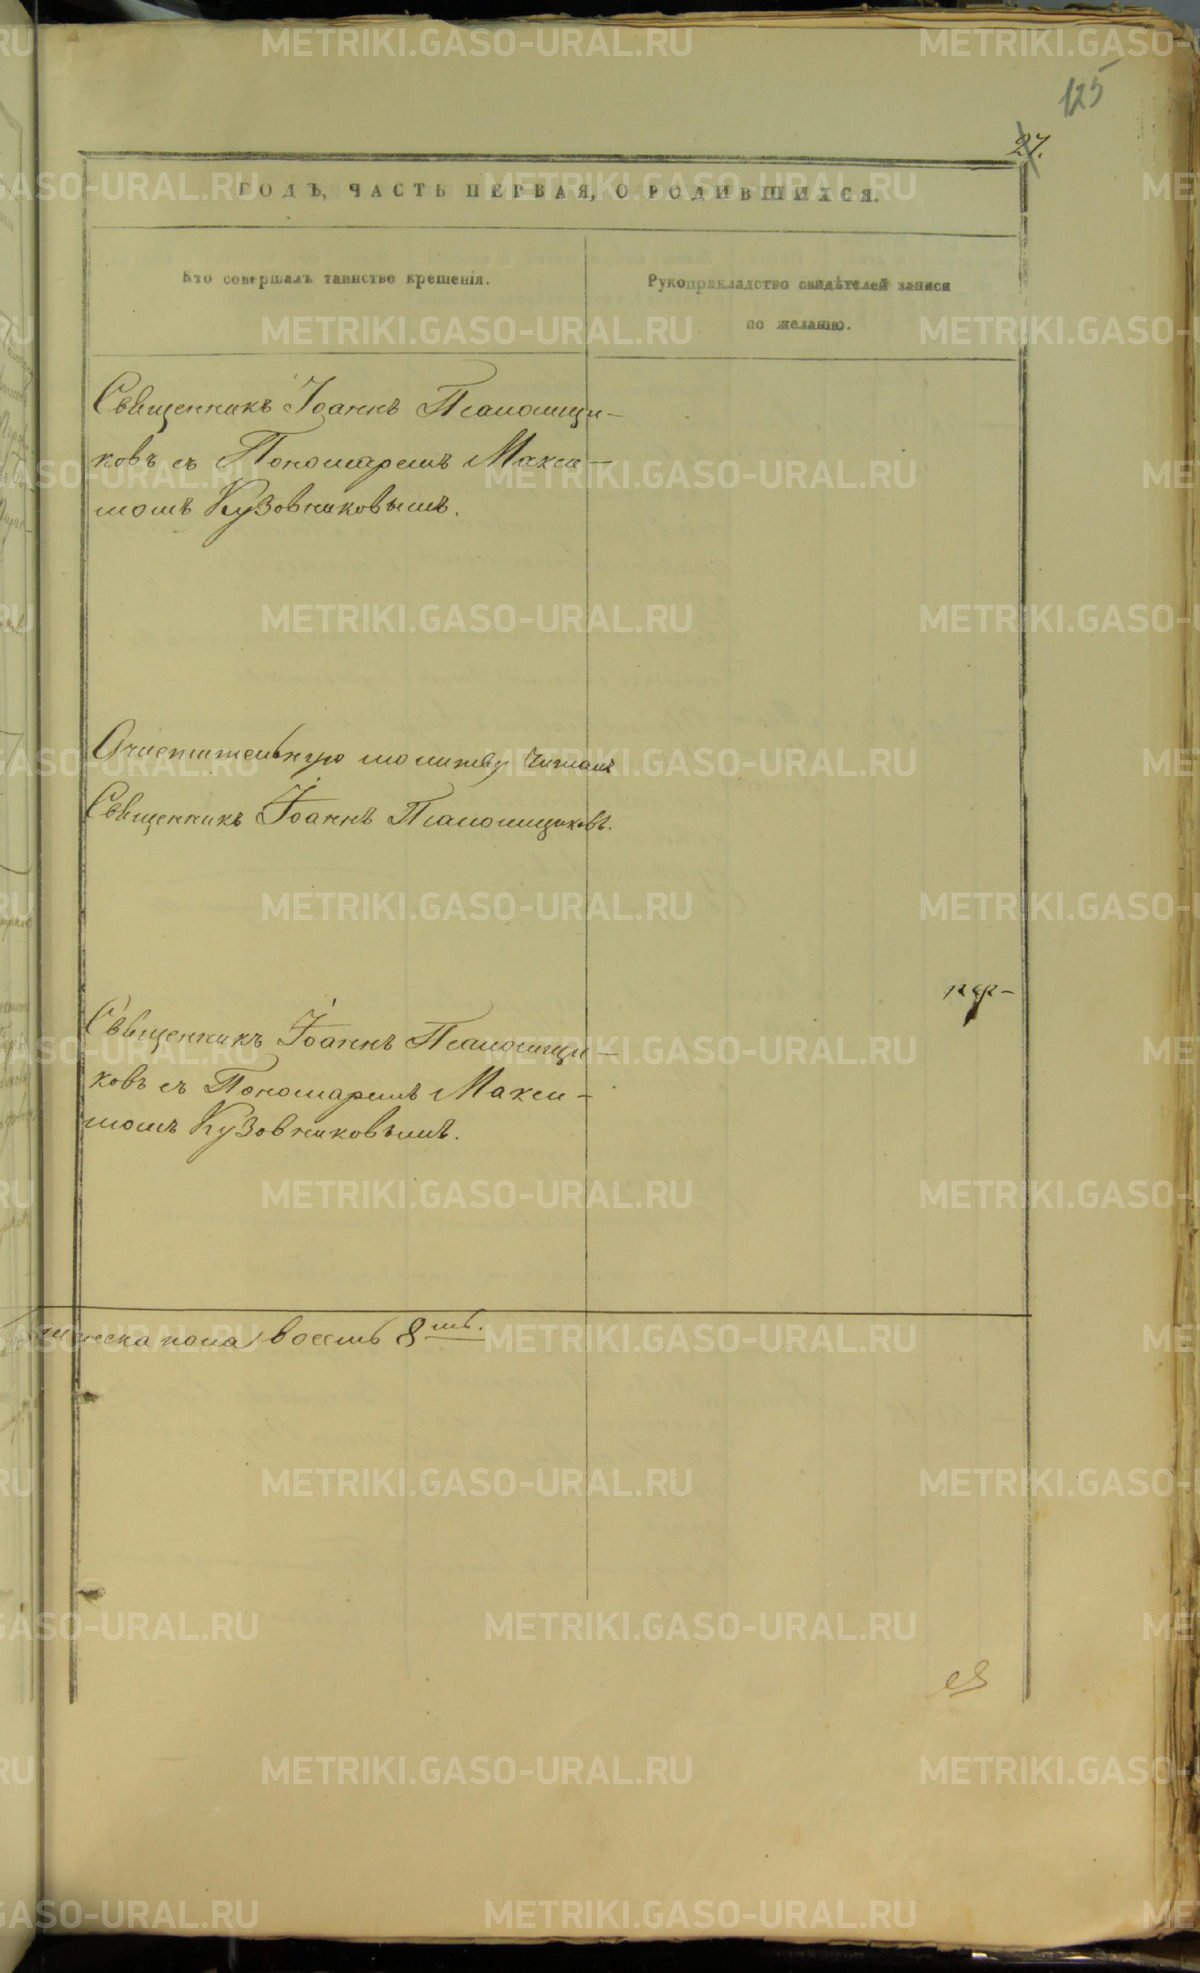 125
27.
ГОДЪ, ЧАСТЬ ПЕРВАЯ, О РОДИВШИХСЯ.
Кто совершалъ таинство крещенія.
Рукоприкладство свидѣтелей записи
по желанію.
Священникъ Іоаннъ Псаломщи-
ковъ съ Пономаремъ Макси-
момъ Кузовниковымъ.
Очистительную молитву читалъ
Священникъ Іоаннъ Псаломщиковъ.
Священникъ Іоаннъ Псаломщи-
ковъ съ Пономаремъ Макси-
момъ Кузовниковымъ.
женска пола восемь 8мь.
METRIKI.GASO-URAL.RU